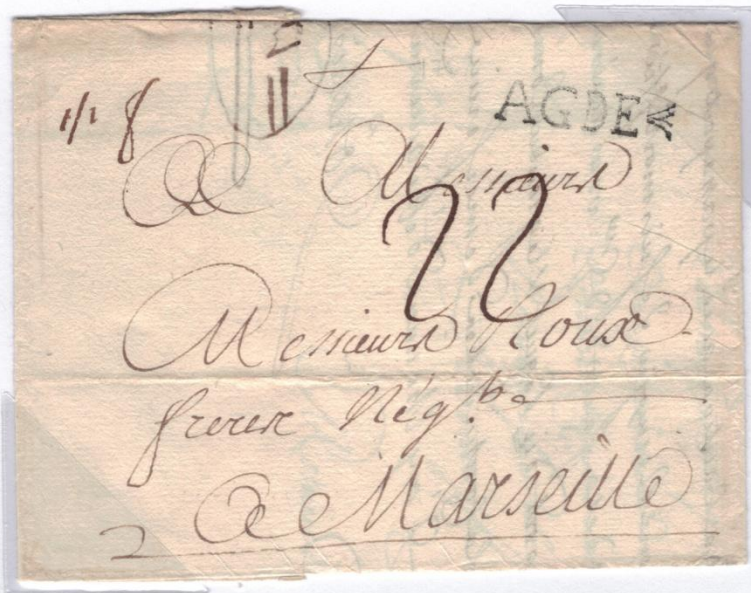 AGDE
A Messieurs
22
Messieurs Roux
freres Neg.ts
A Marseille